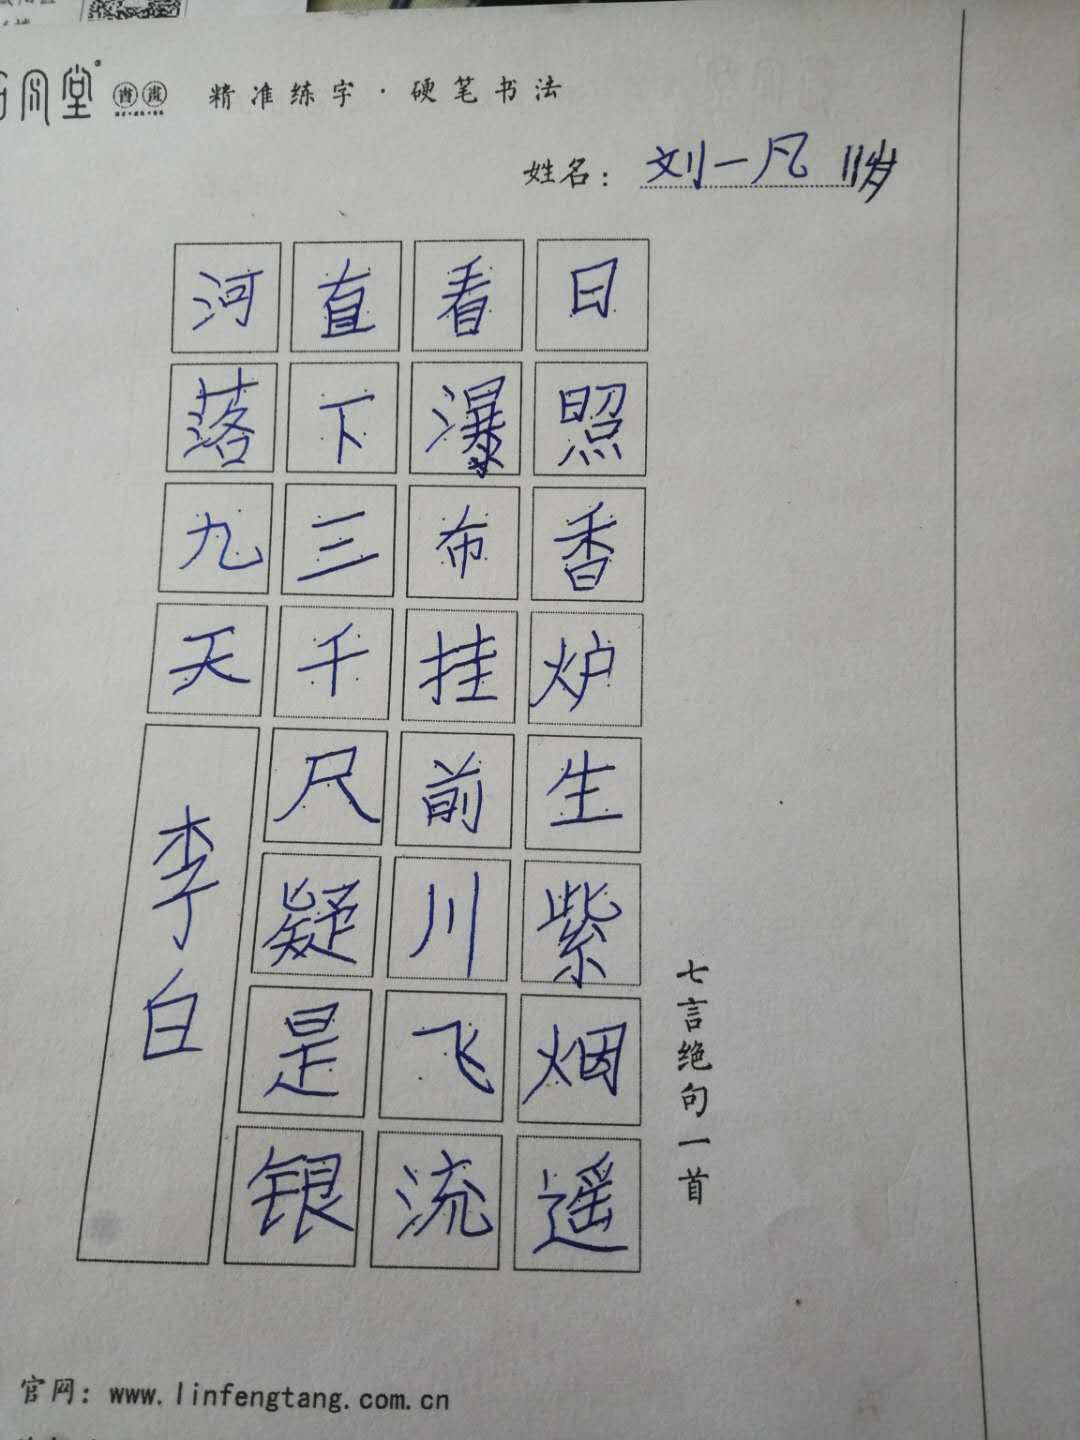 精准练字·硬笔书法
姓名：刘一凡 11岁
七言绝句一首
日照香炉生紫烟遥
看瀑布挂前川飞流
直下三千尺疑是银
河落九天
李白
官网：www.linfengtang.com.cn